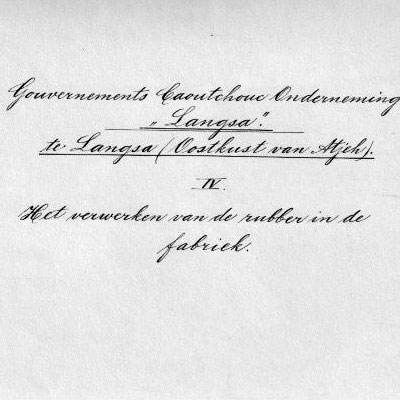 Gouvernements Caoutchouc Onderneming
„Langsa".
te Langsa (Oostkust van Atjeh).
IV.
Het verwerken van de rubber in de
fabriek.